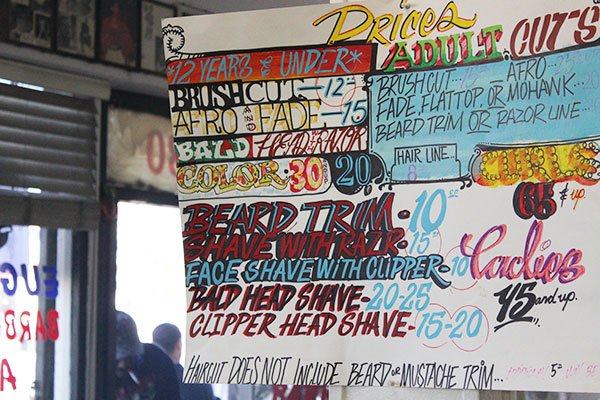 Prices
ADULT CUTS
*12 YEARS & UNDER*
BRUSH CUT - 12
AFRO FADE - 15
BALD HEAD W/ RAZOR
COLOR 30 20
BRUSH CUT... AFRO...
FADE, FLATTOP, OR MOHAWK...
BEARD TRIM OR RAZOR LINE...
HAIR LINE... 8
CURLS
65 & up.
BEARD TRIM - 10
SHAVE WITH RAZR - 15
FACE SHAVE WITH CLIPPER - 10
BALD HEAD SHAVE - 20-25
CLIPPER HEAD SHAVE - 15-20
Ladies
45 and up...
HAIRCUT DOES NOT INCLUDE BEARD OR MUSTACHE TRIM...
EUG
BARB
A